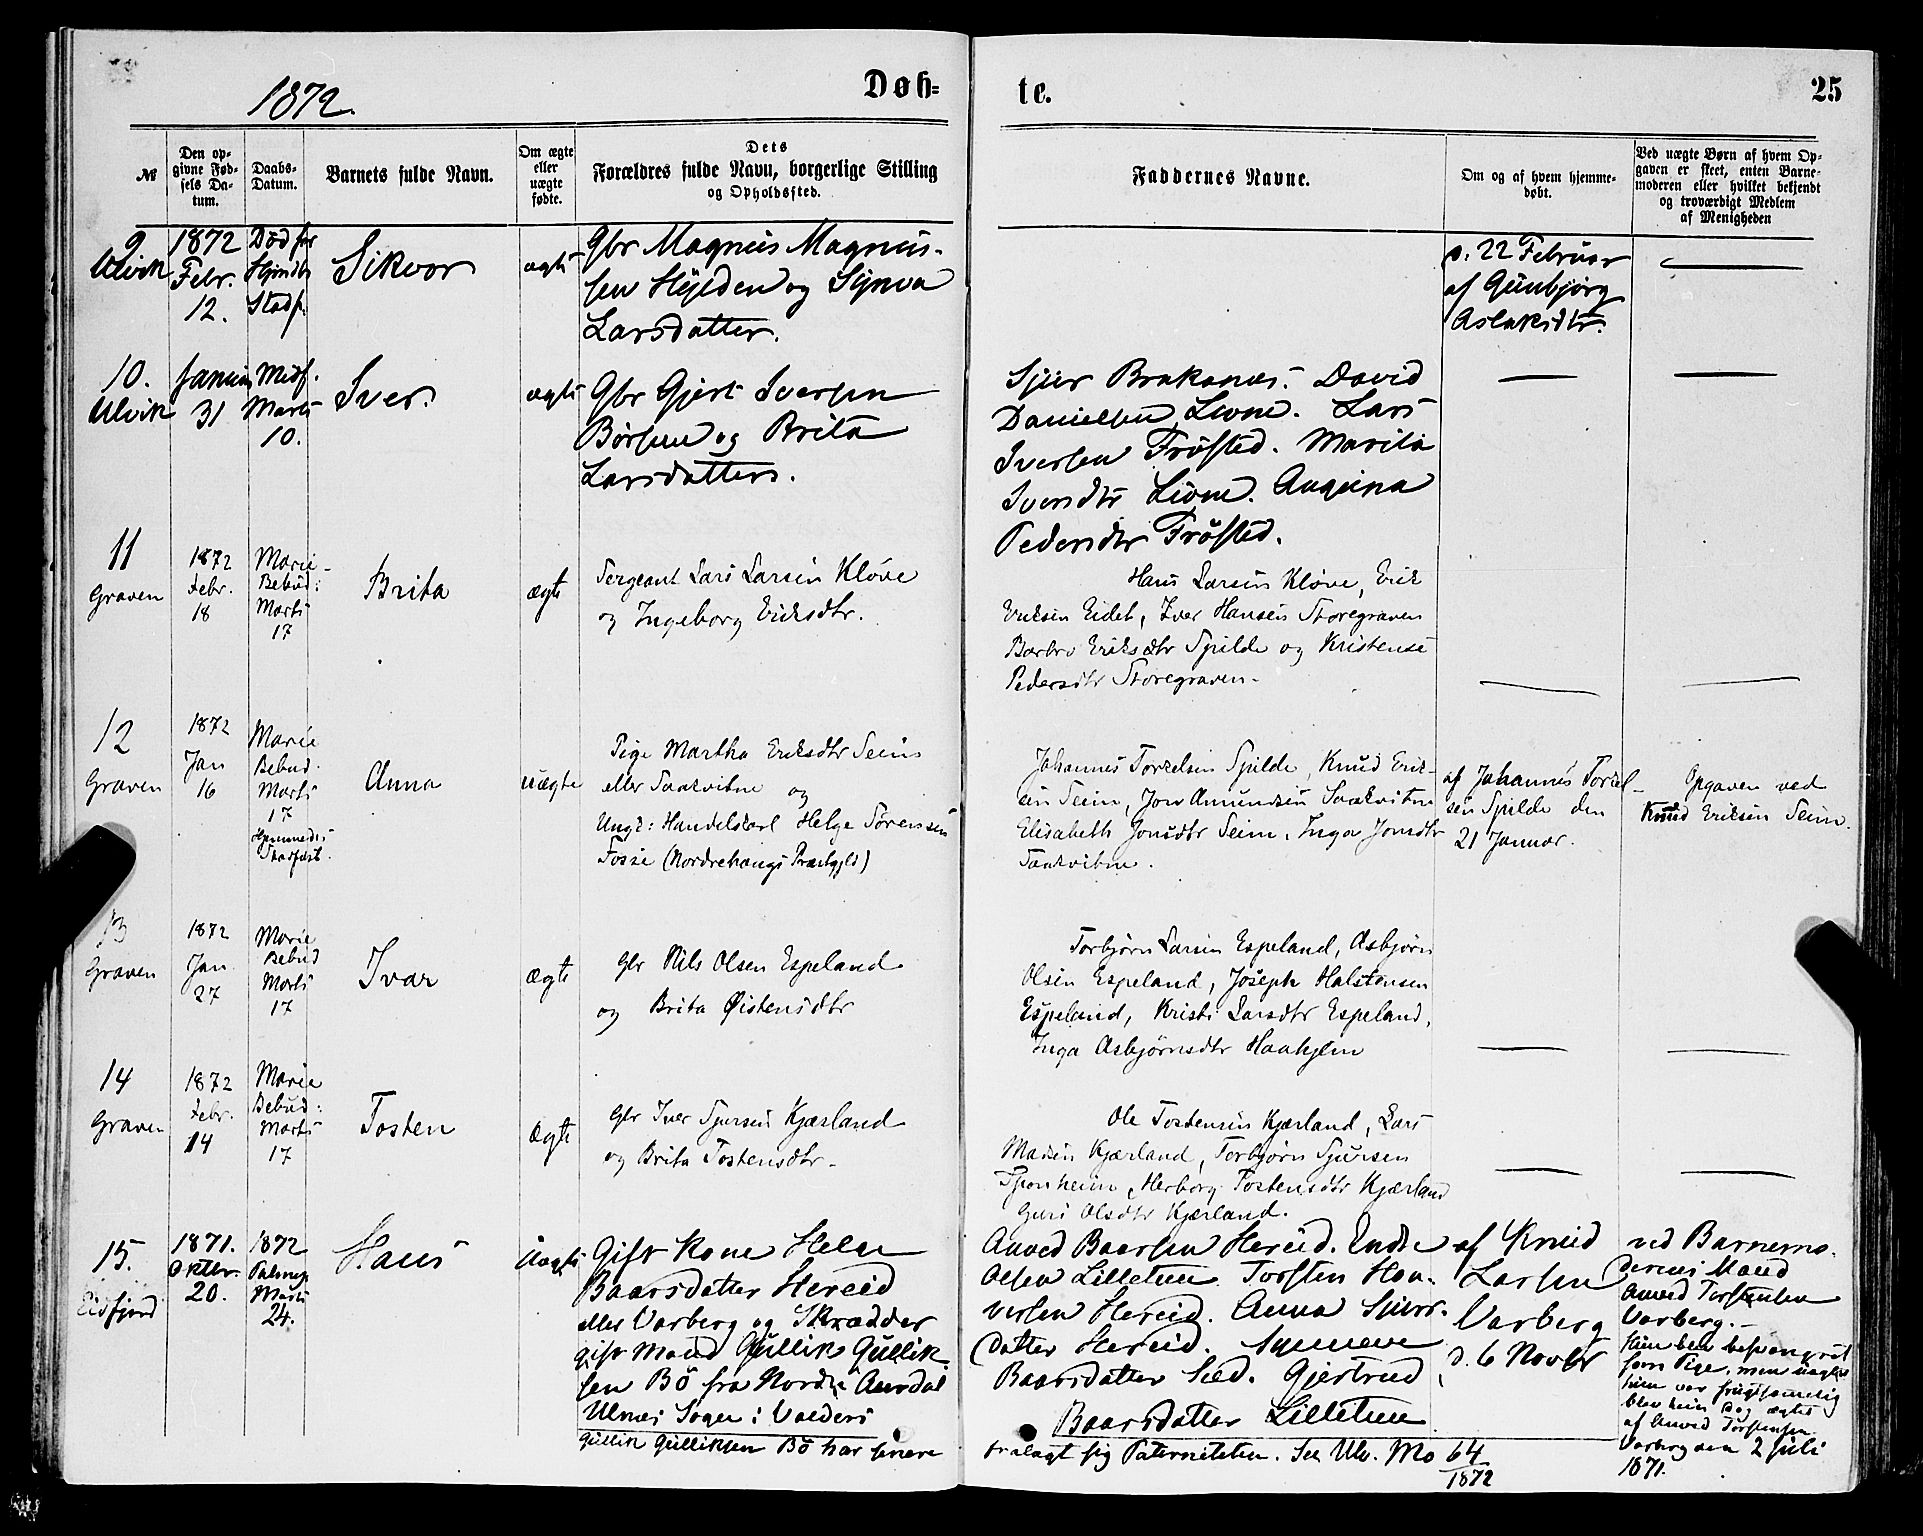 1872.
Døb=
te.
25
№
Den op-
givne Fød-
sels Da-
tum.
Daabs-
Datum.
Barnets fulde Navn.
Om ægte
eller
uægte
fødte.
Dets
Forældres fulde Navn, borgerlige Stilling
og Opholdssted.
Faddernes Navne.
Om og af hvem hjemme-
døbt.
Ved uægte Børn af hvem Op-
gaven er skeet, enten Barne-
moderen eller hvilket bekjendt
og troværdigt Medlem
af Menigheden
9
Ulvik
1872
Febr.
12.
Død før
Stadf.
Sikvor
ægte
Gbr Magnus Magnus-
sen og Synva
Larsdatter.
d. 22 Februar
af Gunbjørg
Aslaksdtr.
10.
Ulvik
Januar
31
Midf.
Marts
10.
Iver.
ægte
Gbr Gjert Iversen
Børsem og Brita
Larsdatter.
Sjur Brakanes. David
Danielsen Lione. Lars
Iversen Frøsted. Marita
Iversdtr Lione. Angrina
Pedersdtr Frøsted.
11
Graven
1872
Febr.
18
Marie-
Bebud:
Marts
17
Brita
ægte
Sergeant Lars Larsen Kløve
og Ingeborg Eriksdtr.
Hans Larsen Kløve, Erik
Eriksen Eidet, Iver Hansen Storegraven
Barbro Eriksdtr Spilde og Kristense
Pedersdtr Storegraven.
12
Graven
1872
Jan
16
Marie
Bebud.
Marts
17
Hjemmedøbt
Stadfæst.
Anna
uægte
Pige Martha Eriksdtr Seim
eller Saakvitne og
Ungk: Handelskarl Helge Sørensen
Fosse (Nordrehougs Præstgjld)
Johannes Torkelsen Spilde, Knud Erik-
sen Seim, Jon Amundsen Saakvitne
Elisabeth Jonsdtr Seim, Inga Jonsdtr
Saakvitne.
af Johannes Torkel-
sen Spilde den
21 Januar.
Opgaven ved
Knud Eriksen Seim.
13
Graven
1872
Jan
27
Marie
Bebud
Marts
17
Ivar
ægte
Gbr Nils Olsen Espeland
og Brita Øistensdtr
Torbjørn Larsen Espeland, Asbjørn
Olsen Espeland, Joseph Halstensen
Espeland, Kristi Larsdtr Espeland,
Inga Asbjørnsdtr Haahjem
14
Graven
1872
Febr.
14
Marie
Bebud:
Marts
17
Tosten
Ægte
Gbr Iver Sjursen Kjærland
og Brita Tostensdtr.
Ole Tostensen Kjærland, Lars
Madsen Kjærland, Torbjørn Sjursen
Sponheim, Herborg Tostensdtr Kjærland
Guri Olsdtr Kjærland.
15.
Eidfjord
1871.
Oktbr.
20.
1872
Palmes
Marts
24.
Hans
Uægte
Gift Kone Helga
Baarsdatter Hereid
eller Varberg og Skrædder
gift Mand Gullik Gullik-
sen Bø fra Nordre Aurdal
Ulnes Sogn i Valders
Gullik Gulliksen Bø har senere
Anved Baarsen Hereid. Endre
Olsen Lilletun. Torsten Hal-
versen Hereid. Anna Sjurs-
datter Hereid. Synneve
Baarsdatter Sæd. Gjertrud
Baarsdatter Lilletun
fralagt sig Paterniteten. See Ulv. No 64
1872
af Knud
Larsen
Varberg
d. 6 Novbr
ved Barnemo-
derens Mand
Anved Torstensen
Varberg.-
Hun blev besvangret
som Pige, men uagtet
hun var frugtsommelig
blev hun dog ægtet
af Anved Torstensen
Varberg den 2 Juli
1871.